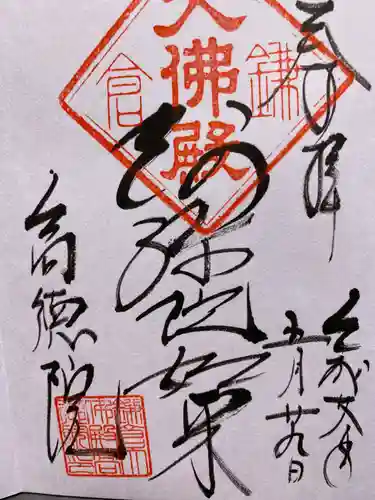 奉拝
平成
五月廿九日
大佛殿
鎌倉
阿弥陀如来
高徳院